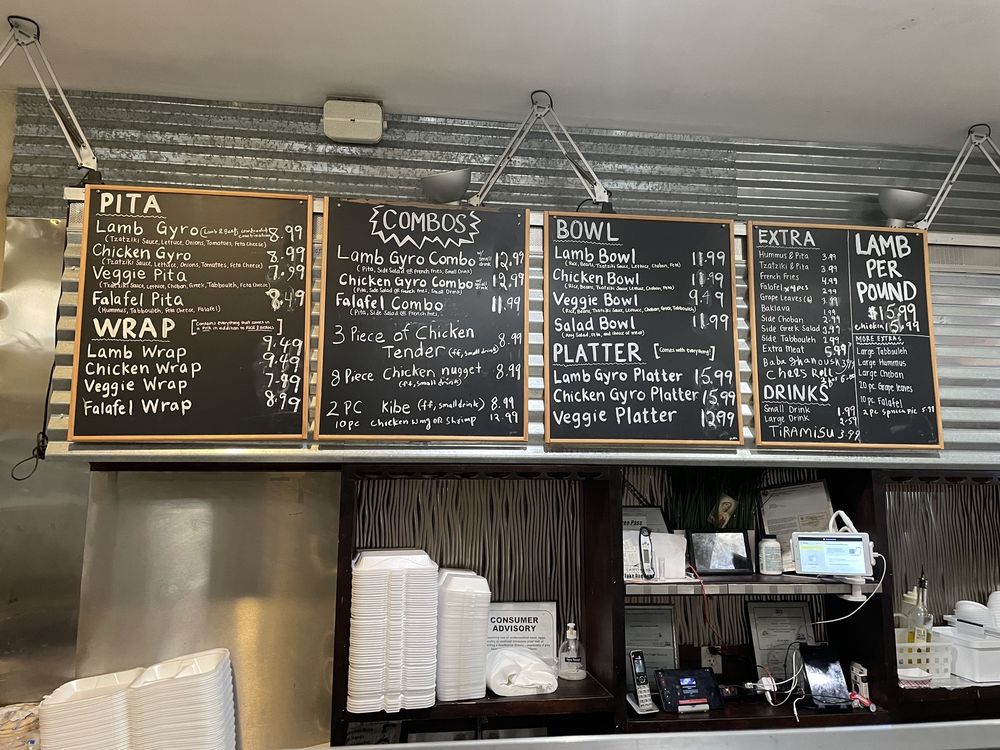 PITA
Lamb Gyro (Lamb & Beef combination) 8.99
(Tzatziki Sauce, Lettuce, Onions, Tomatoes, Feta Cheese)
Chicken Gyro 8.99
(Tzatziki Sauce, Lettuce, Onions, Tomatoes, Feta Cheese)
Veggie Pita 7.99
(Tzatziki Sauce, Lettuce, Choban, Greek, Tabbouleh, Feta Cheese)
Falafel Pita 8.49
(Hummus, Tabbouleh, Feta Cheese, Falafel)
WRAP [Contains everything that comes in a Pita in addition to RICE & BEANS]
Lamb Wrap 9.49
Chicken Wrap 9.49
Veggie Wrap 7.99
Falafel Wrap 8.99
COMBOS
Lamb Gyro Combo w/ Small drink 12.99
(Pita, Side Salad or French fries, Small Drink)
Chicken Gyro Combo 12.99
(Pita, Side Salad or French fries, Small Drink)
Falafel Combo 11.99
(Pita, Side Salad or French fries,
3 Piece of Chicken
Tender (ff, small drink) 8.99
8 Piece Chicken nugget 8.99
(ff, small drink)
2 PC Kibe (ff, small drink) 8.99
10 pc chicken wing or Shrimp 12.99
BOWL
Lamb Bowl 11.99
(Rice, Beans, Tzatziki Sauce, Lettuce, Choban, Feta)
Chicken Bowl 11.49
(Rice, Beans, Tzatziki Sauce, Lettuce, Choban, Feta)
Veggie Bowl 9.49
(Rice, Beans, Tzatziki Sauce, Lettuce, Choban, Greek, Tabbouleh, Feta)
Salad Bowl 11.99
(Any Salad, Pita, and choice of meat)
PLATTER [Comes with everything!]
Lamb Gyro Platter 15.99
Chicken Gyro Platter 15.99
Veggie Platter 12.99
EXTRA
Hummus & Pita 3.99
Tzatziki & Pita 3.99
French Fries 4.99
Falafel 4 pcs 2.99
Grape Leaves (6) 3.99
Baklava 1.99
Side Choban 2.99
Side Greek Salad 3.97
Side Tabbouleh 2.99
Extra Meat 5.99
Baba Ghanoush
Chees Roll
DRINKS
Small Drink 1.99
Large Drink
TiRAMiSU 3.99
LAMB
PER
POUND
$15.99
chicken 15.99
MORE EXTRAS
Large Tabbouleh
Large Hummus
Large Choban
20 pc Grape leaves
10 pc Falafel
2 pc Spinach pie
CONSUMER
ADVISORY